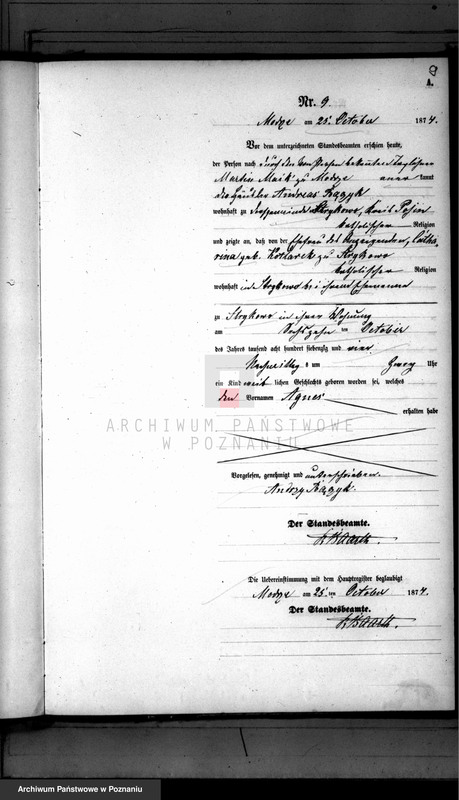 A.
Nr. 9.
Modze am 25ten October 1874.
Vor dem unterzeichneten Standesbeamten erschien heute,
der Person nach durch den von Person bekannten Tagelöhner
Martin Maik zu Modze anerkannt
Häusler Andreas
wohnhaft zu Strykowo, Kreis Posen
katholischer Religion
und zeigte an, daß von der Ehefrau des Anzeigenden, Catha-
rina geb. Kotlarek zu Strykowo
katholischer Religion
wohnhaft in Strykowo bei ihrem Ehemanne
zu Strykowo in ihrer Wohnung
am Sechszehn ten October
des Jahres tausend acht hundert siebenzig und vier
Nachmittags um zwey Uhr
ein Kind weiblichen Geschlechts geboren worden sei, welches
den Vornamen Agnes
erhalten habe
ARCHIWUM PAŃSTWOWE
W POZNANIU
Vorgelesen, genehmigt und unterschrieben.
Andrzy
Der Standesbeamte.
Die Uebereinstimmung mit dem Hauptregister beglaubigt
Modze am 25ten October 1874.
Der Standesbeamte.
Archiwum Państwowe w Poznaniu